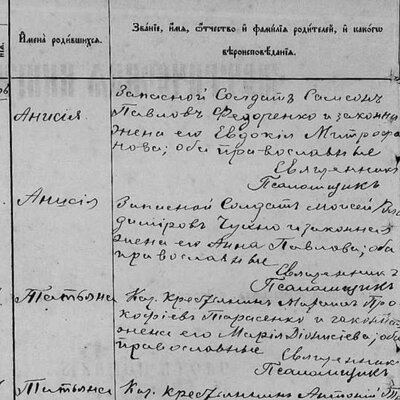 Имена родившихся.
Званіе, имя, отчество и фамилія родителей, и какого вѣроисповѣданія.
Анисія.
Запасной Солдатъ Самсонъ
Павловъ Федоренко и законная
жена его Евдокія Митрофа
нова; оба православные
Священникъ
Псаломщикъ
Анисія
Запасной Солдатъ Моисей Вла
диміровъ и законная
жена его Анна Павлова; оба
православные
Священникъ
Псаломщикъ
Татьяна
Каз. крестьянинъ Про
кофіевъ Тарасенко и законная
жена его Марія Діонисіева; оба
православные
Священникъ
Псаломщикъ
Татьяна
Каз. крестьянинъ Антоній